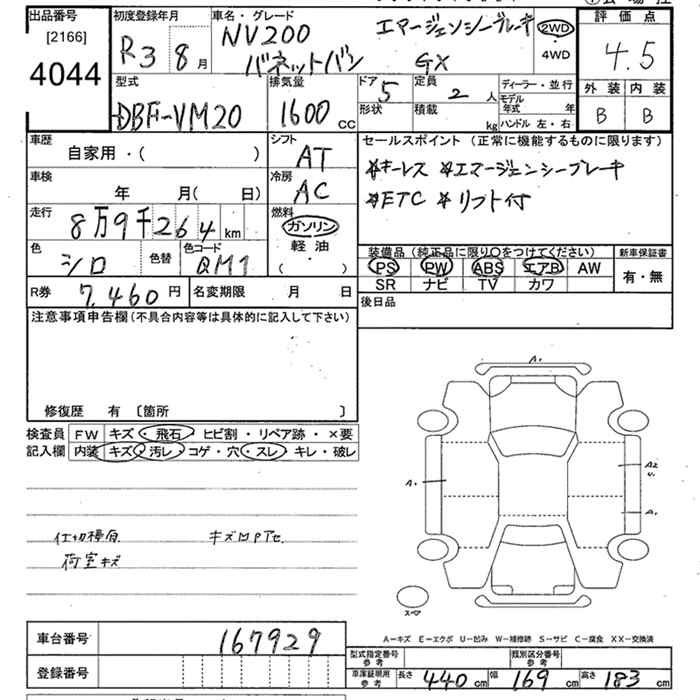 出品番号 初度登録年月 車名・グレード エマージェンシーブレーキ 2WD 評価点
[2166] R3 8月 NV200 バネットバン GX ・ 4WD 4.5
4044
型式 排気量 ドア 5 定員 2 人 ディーラー・並行 外装 内装
DBF-VM20 1600 CC 形状 積載 kg モデル年式 年 B B
ハンドル 左・右
車歴 自家用・( ) シフト AT セールスポイント (正常に機能するものに限ります)
車検 年 月( 日) 冷房 AC *キーレス *エマージェンシーブレーキ
走行 8万9千264km 燃料 ガソリン *ETC *リフト付
軽油
( ・ )
色 シロ 色替 色コード QM1
装備品 (純正品に限り〇をつけてください) 新車保証書
PS PW ABS エアB AW 有・無
SR ナビ TV カワ
R券 7,460 円 名変期限 月 日 後日品
注意事項申告欄 (不具合内容等は具体的に記入して下さい)
修復歴 有 〔箇所 〕
検査員 FW キズ・飛石・ヒビ割・リペア跡・×要
記入欄 内装 キズ・汚レ・コゲ・穴・スレ・キレ・破レ
A.
A. A2
A.
荷室キズ
スペア
A-キズ E-エクボ U-凹み W-補修跡 S-サビ C-腐食 XX-交換済
車台番号 167929 型式指定番号 参考 類別区分番号 参考
登録番号 車庫証明用 参考 長さ 440 cm 幅 169 cm 高さ 183 cm